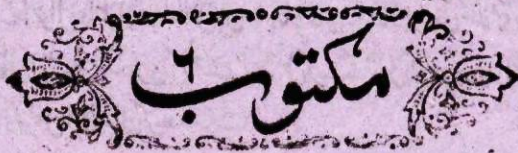 مکتوب ٦